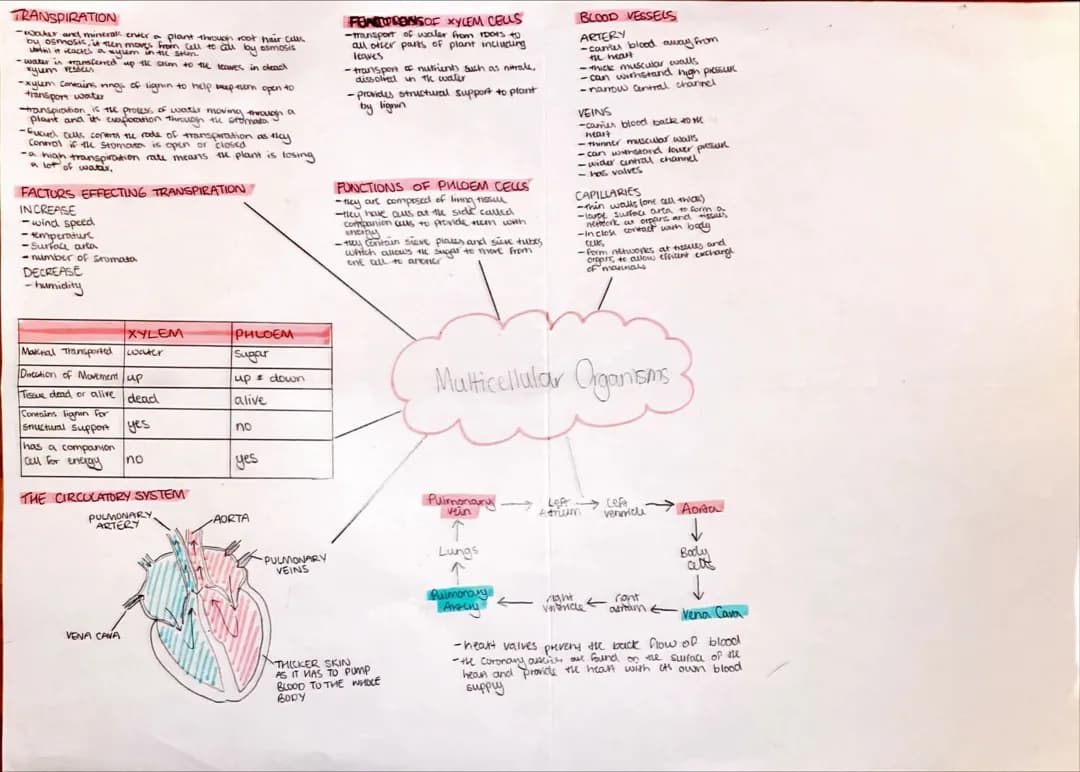 TRANSPIRATION
- water and minerals enter a plant through root hair cells
by osmosis, it then moves from cell to cell by osmosis
until it reaches a xylem in the stem.
- water is transferred up the stem to the leaves in dead
xylem vessels
- xylem contains rings of lignin to help keep them open to
transport water
- transpiration is the process of water moving through a
plant and its evaporation through the stomata
- Guard cells control the rate of transpiration as they
control if the stomata is open or closed
- a high transpiration rate means the plant is losing
a lot of water.
FACTORS EFFECTING TRANSPIRATION
INCREASE
- wind speed
- temperature
- surface area
- number of stomata
DECREASE
- humidity
XYLEM PHLOEM
Material Transported water sugar
Direction of Movement up up & down
Tissue dead or alive dead alive
Contains lignin for
structural support yes no
has a companion
cell for energy no yes
THE CIRCULATORY SYSTEM
PULMONARY
ARTERY
AORTA
PULMONARY
VEINS
VENA CAVA
THICKER SKIN
AS IT HAS TO PUMP
BLOOD TO THE WHOLE
BODY
OF XYLEM CELLS
- transport of water from roots to
all other parts of plant including
leaves
- transport of nutrients such as nitrate,
dissolved in the water
- provides structural support to plant
by lignin
FUNCTIONS OF PHLOEM CELLS
- they are composed of living tissue
- they have cells at the side called
companion cells to provide them with
energy
- they contain sieve plates and sieve tubes
which allows the sugar to move from
one cell to another
BLOOD VESSELS
ARTERY
- carries blood away from
the heart
- thick muscular walls
- can withstand high pressure
- narrow central channel
VEINS
- carries blood back to the
heart
- thinner muscular walls
- can withstand lower pressure
- wider central channel
- has valves
CAPILLARIES
- thin walls (one cell thick)
- large surface area to form a
network at organs and tissues
- In close contact with body
cells
- form networks at tissues and
organs, to allow efficient exchange
of materials
Multicellular Organisms
Pulmonary
vein
Left
Atrium
Left
ventricle
Aorta
Body
cells
Vena Cava
right
atrium
right
ventricle
Pulmonary
Artery
Lungs
- heart valves prevent the back flow of blood
- the coronary arteries are found on the surface of the
heart and provide the heart with its own blood
supply